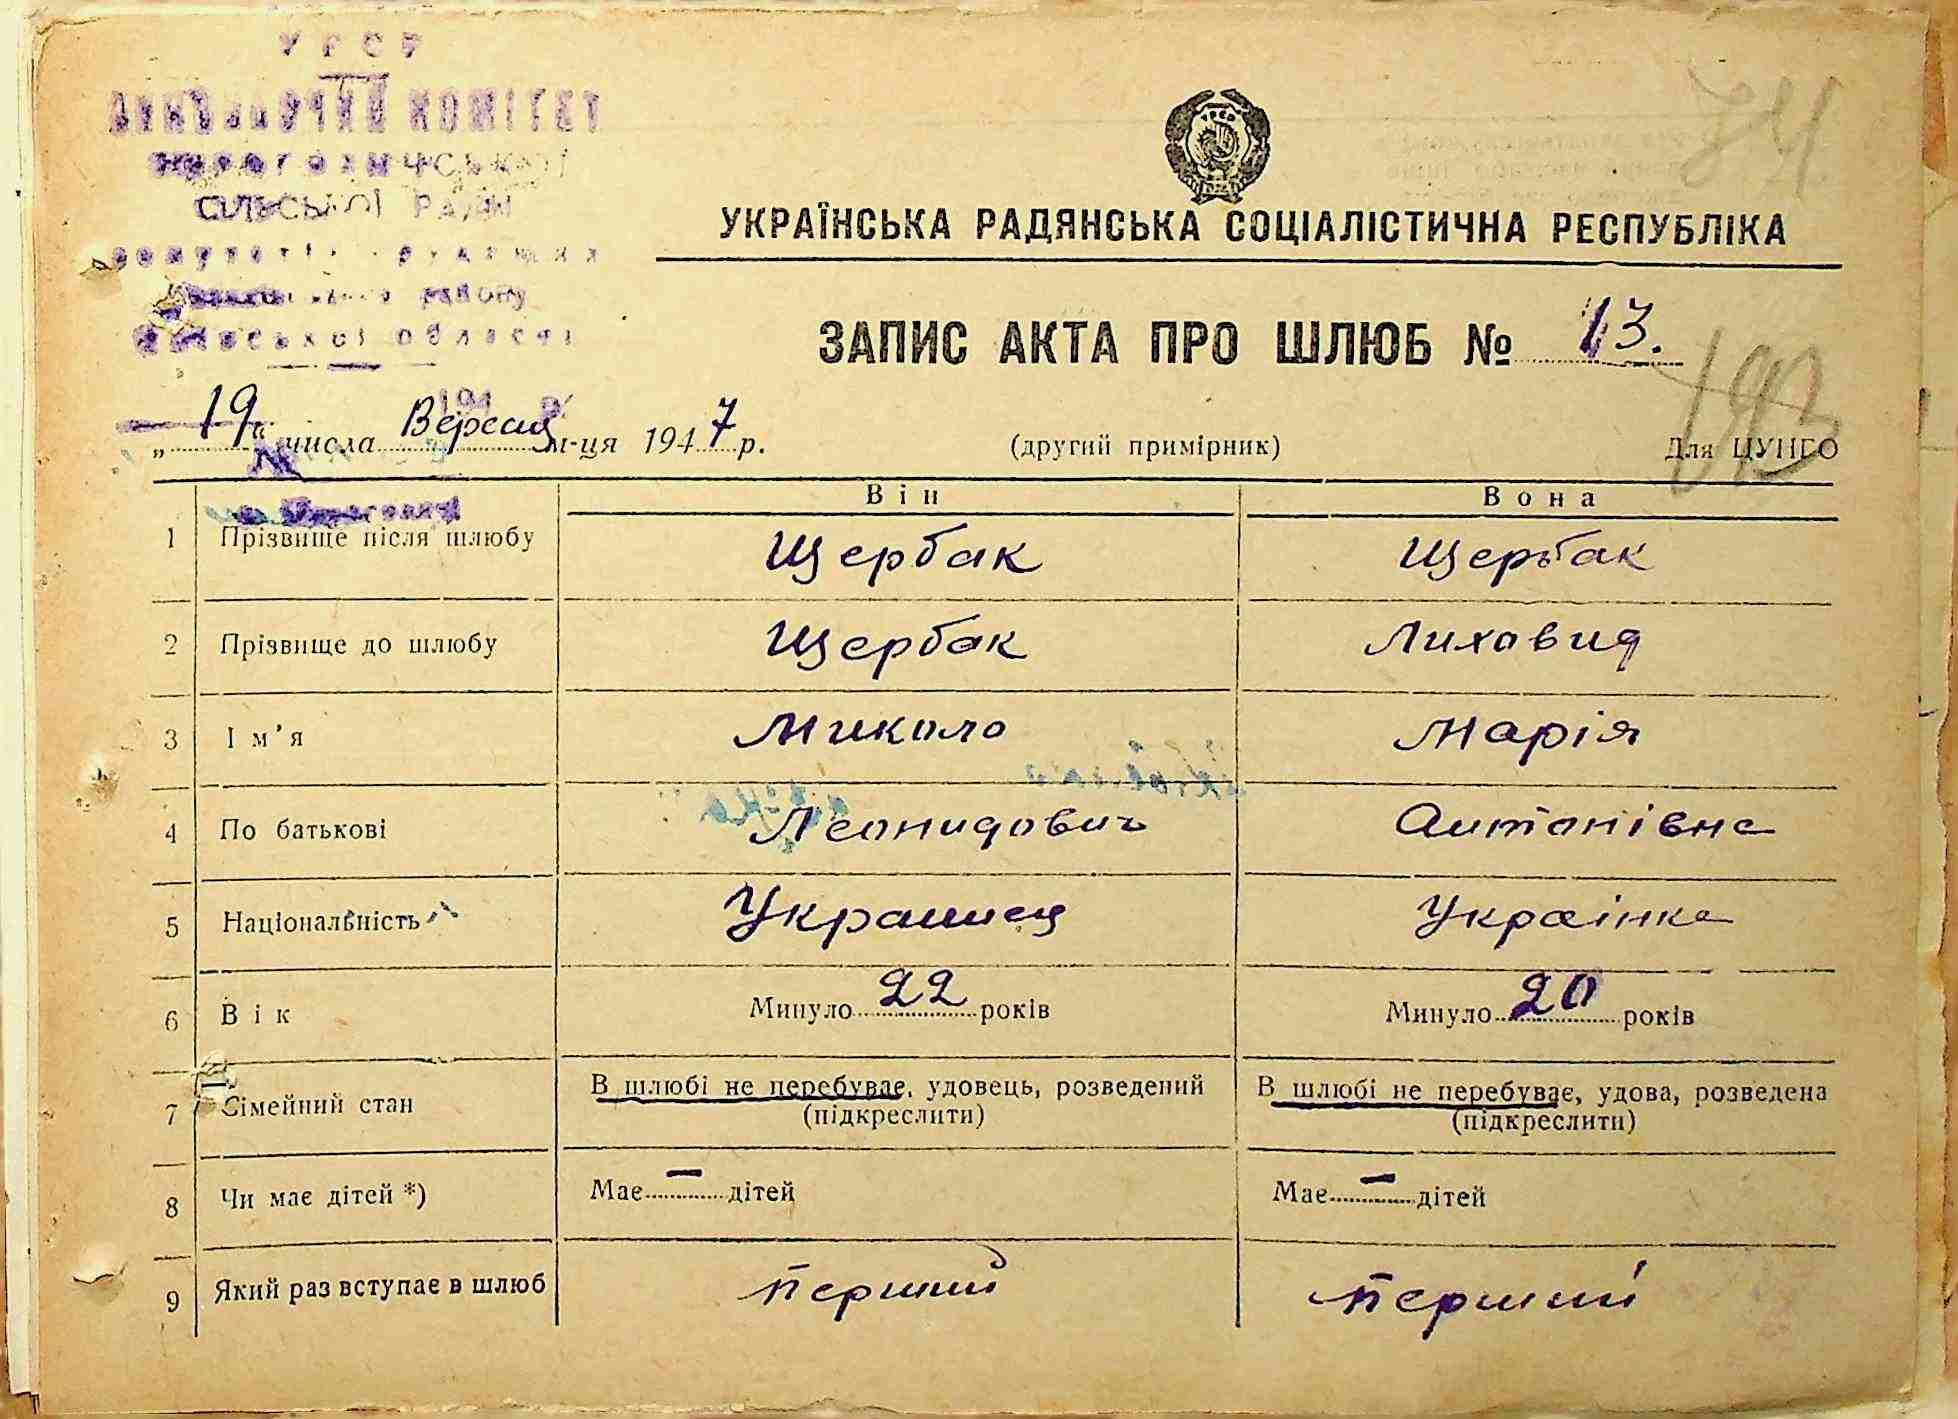 УРСР
ВИКОНАВЧИЙ КОМІТЕТ
СІЛЬСЬКОЇ РАДИ
району
області
74
УРСР
УКРАЇНСЬКА РАДЯНСЬКА СОЦІАЛІСТИЧНА РЕСПУБЛІКА
ЗАПИС АКТА ПРО ШЛЮБ № 13.
193
194 р.
„19“ числа Вересня м-ця 1947 р.
(другий примірник)
Для ЦУНГО
Він
Вона
1 Прізвище після шлюбу Щербак Щербак
2 Прізвище до шлюбу Щербак Лиховид
3 Ім’я Микола Марія
4 По батькові Леонидович Антонівна
5 Національність Украинец Українка
6 Вік Минуло 22 років Минуло 20 років
7 Сімейний стан В шлюбі не перебуває, удовець, розведений В шлюбі не перебуває, удова, розведена
(підкреслити) (підкреслити)
8 Чи має дітей *) Має – дітей Має – дітей
9 Який раз вступає в шлюб перший перший